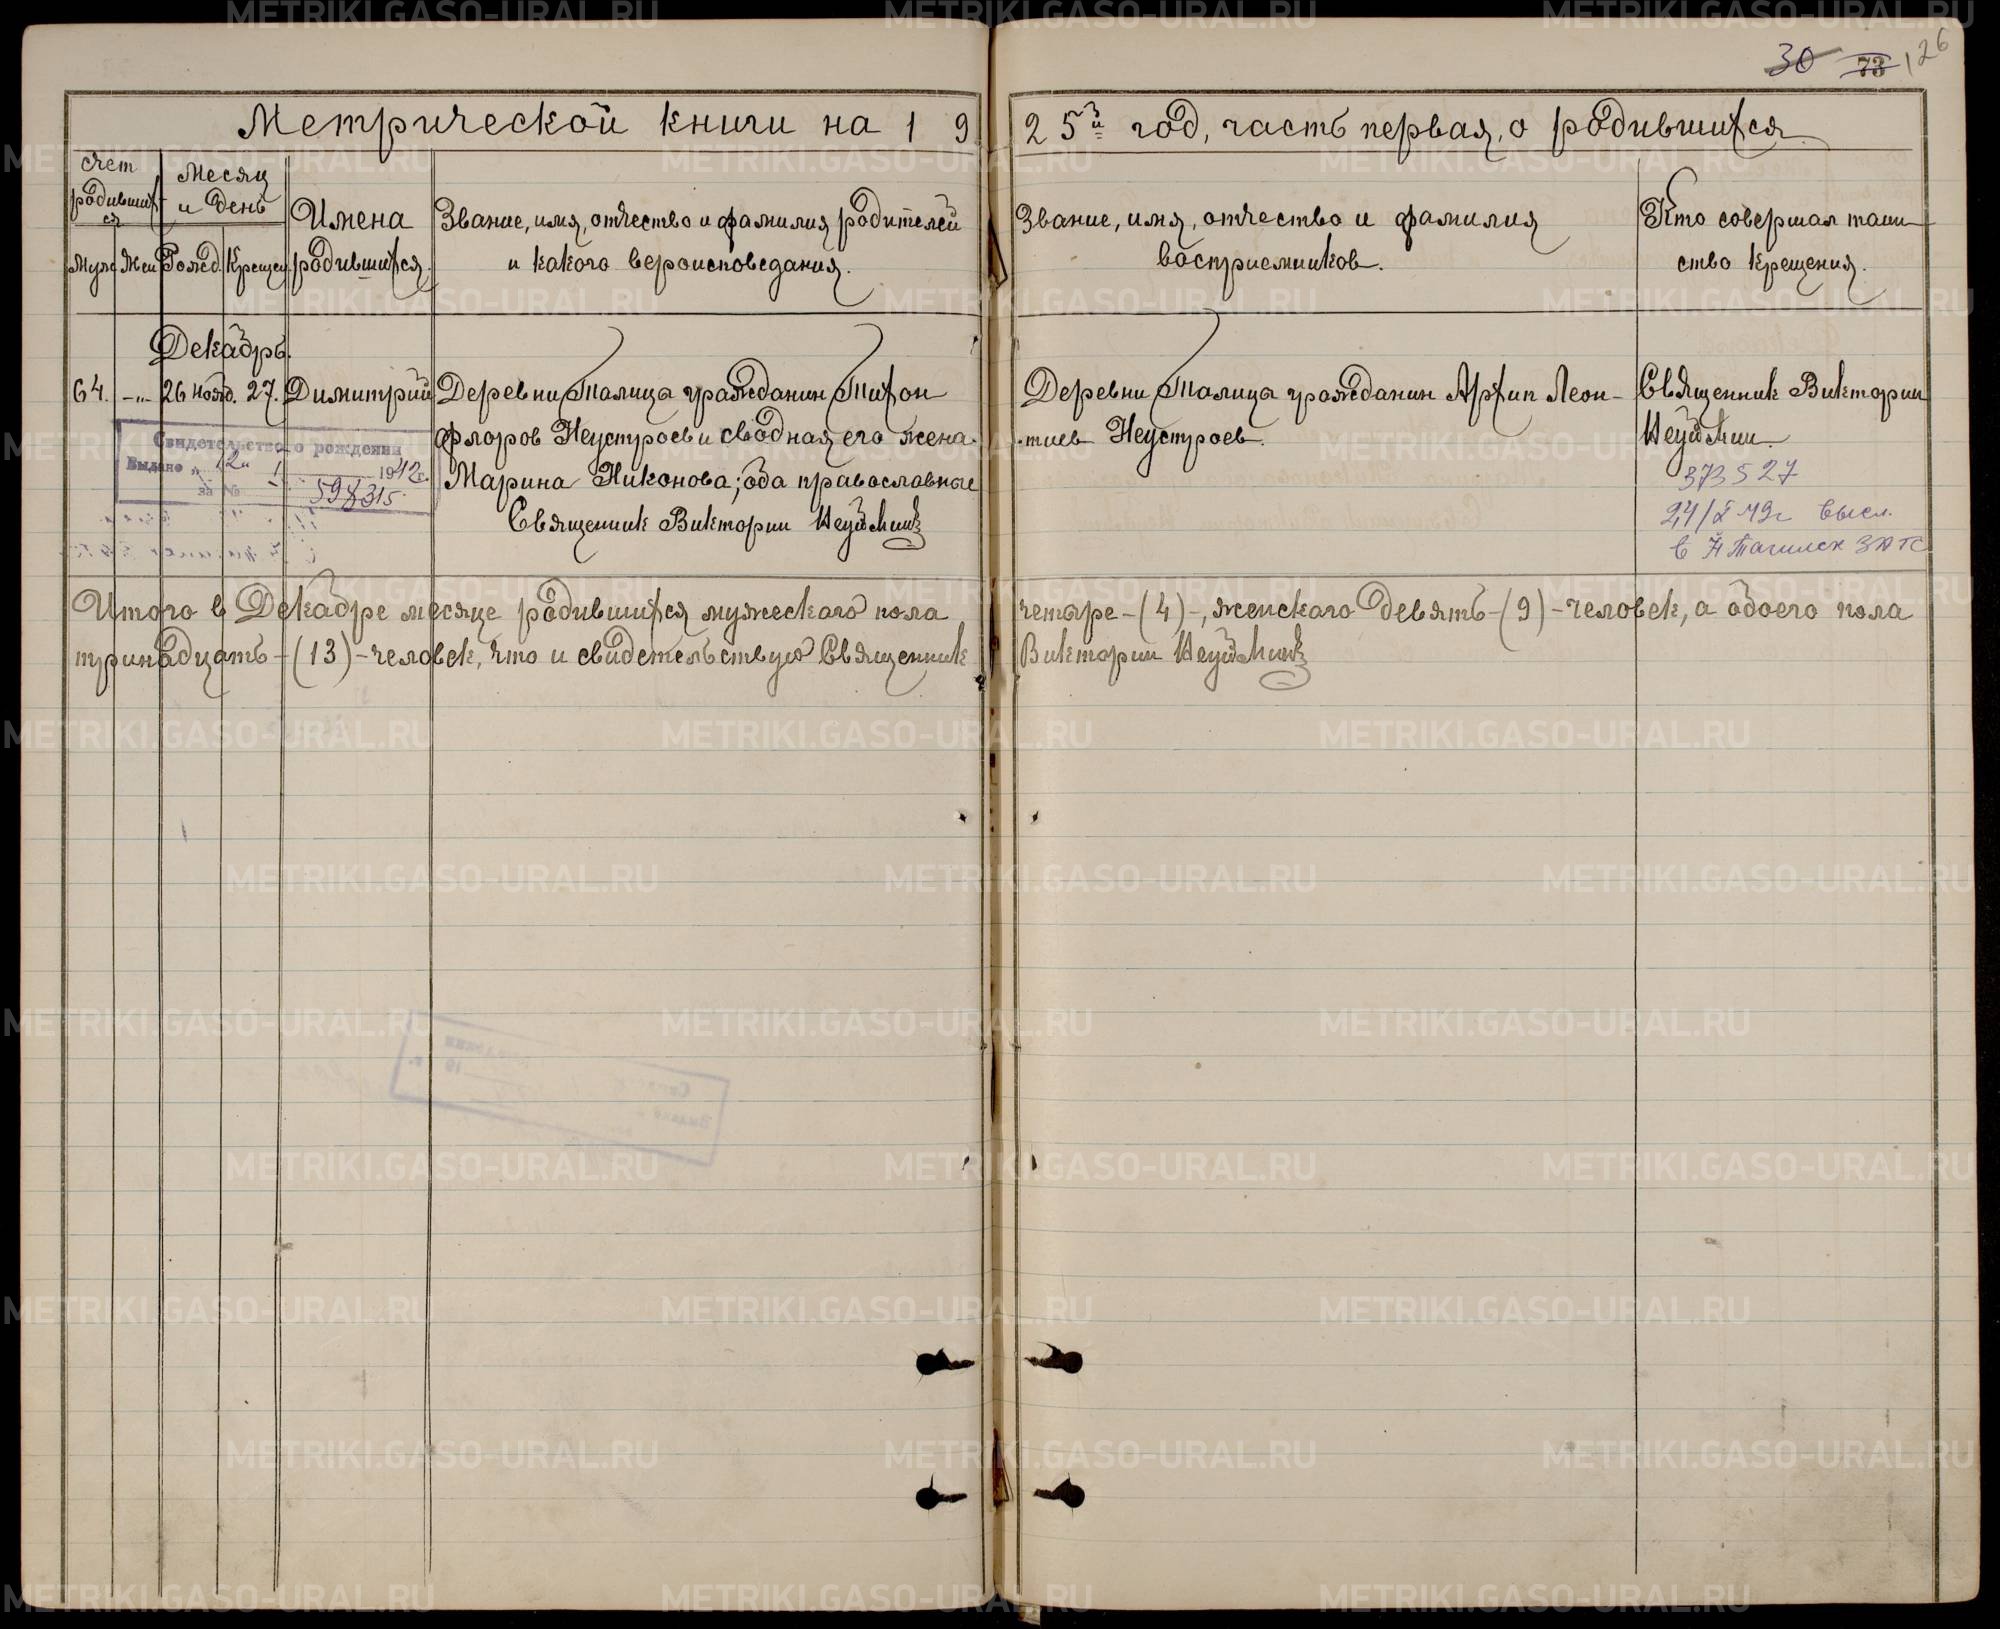 30 73 126
Метрической книги на 1 9 2 5й год, часть первая, о родившихся
Счет родившихся
Месяц и день
Муж. Жен. Рожд. Крещен.
Имена
родившихся.
Звание, имя, отчество и фамилия родителей
и какого вероисповедания.
Звание, имя, отчество и фамилия
восприемников.
Кто совершал таин-
ство крещения.
Декабрь.
64. -"- 26 нояб. 27. Димитрий
Деревни Талица гражданин Тихон
Флоров Неустроев и сводная его жена
Марина Никонова; оба православные
Священник Викторин
Свидетельство о рождении
Выдано "12" 1942 г.
за № 598315
Деревни Талица гражданин Архип Леон-
тиев Неустроев.
Священник Викторин
373527
в Н Тагилск ЗАГС
Итого в Декабре месяце родившихся мужеского пола четыре-(4)-, женского девять-(9)-человек, а обоего пола
тринадцать-(13)-человек, что и свидетельствую Священник Викторин
METRIKI.GASO-URAL.RU